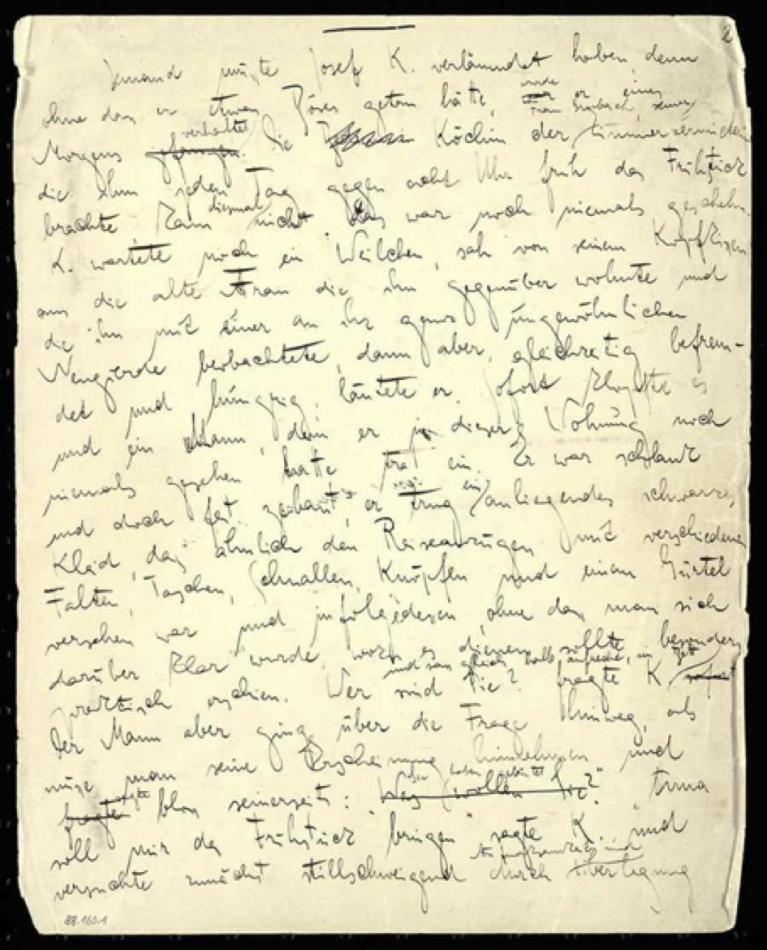 2
Jemand musste Josef K. verläumdet haben denn
ohne dass er etwas Böses getan hätte, wurde er eines
war Frau Grubach, seiner
Morgens gefangen verhaftet. Die Köchin der Zimmervermieterin
die ihm jeden Tag gegen acht Uhr früh das Frühstück
brachte kam diesmal nicht. Das war noch niemals geschehn.
K. wartete noch ein Weilchen, sah von seinem Kopfkissen
aus die alte Frau die ihm gegenüber wohnte und
die ihn mit einer an ihr ganz ungewöhnlichen
Neugierde beobachtete, dann aber, gleichzeitig befrem-
det und hungrig, läutete er. Sofort klopfte es
und ein Mann, den er in dieser Wohnung noch
niemals gesehen hatte trat ein. Er war schlank
und doch fest gebaut, er trug ein anliegendes schwarzes
Kleid, das ähnlich den Reiseanzügen mit verschiedenen
Falten, Taschen, Schnallen, Knöpfen und einem Gürtel
versehen war und infolgedessen, ohne dass man sich
darüber klar wurde, wozu es dienen sollte, besonders
praktisch erschien. Wer sind Sie? fragte K. sofort
und sass gleich halb aufrecht im Bett
Der Mann aber ging über die Frage hinweg, als
müsse man seine Erscheinung hinnehmen und
fragte sagte bloss seinerseits: "Was wollen Sie?" Sie haben geläutet "Anna
soll mir das Frühstück bringen" sagte K. und
versuchte zunächst stillschweigend durch Aufmerksamkeit und Überlegung
88.160.1